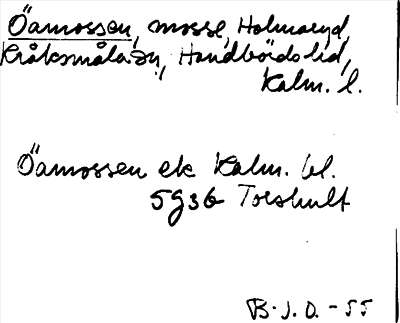 Öamossen, mosse, Holmaryd,
Kråksmåla sn, Handbörds hd,
Kalm. l.
Öamossen ek Kalm. bl.
5g36 Torshult
B.J.O. - 55